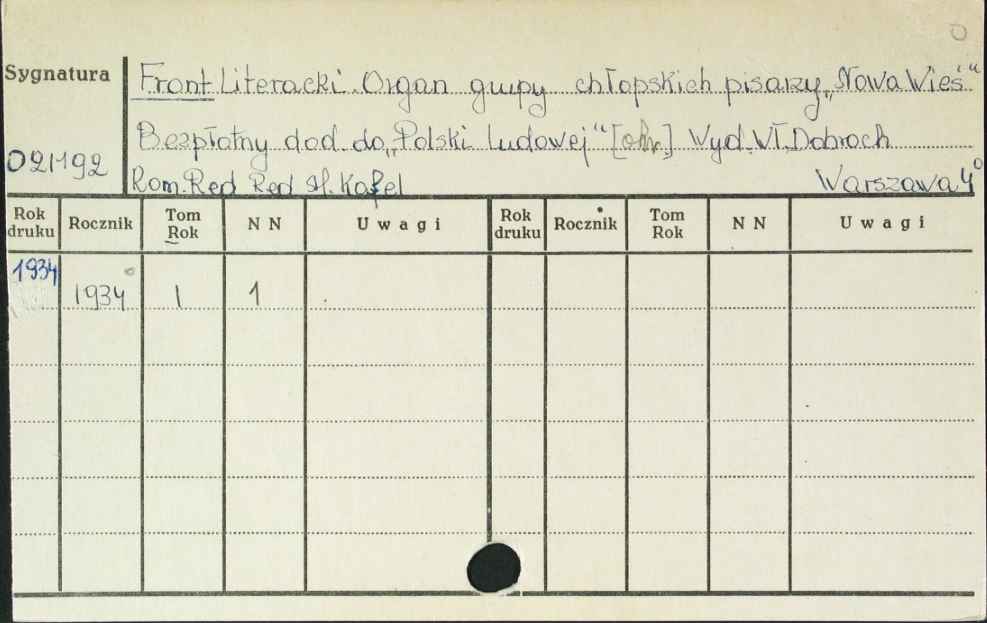 Sygnatura
Front Literacki. Organ grupy chłopskich pisarzy „Nowa Wieś“
Bezpłatny dod. do „Polski Ludowej“ [okr.] Wyd. Wł. Dobroch
021192
Kom. Red Red St. Kafel Warszawa 4°
Rok druku Rocznik Tom Rok NN Uwagi Rok druku Rocznik Tom Rok NN Uwagi
1934 1934 1 1